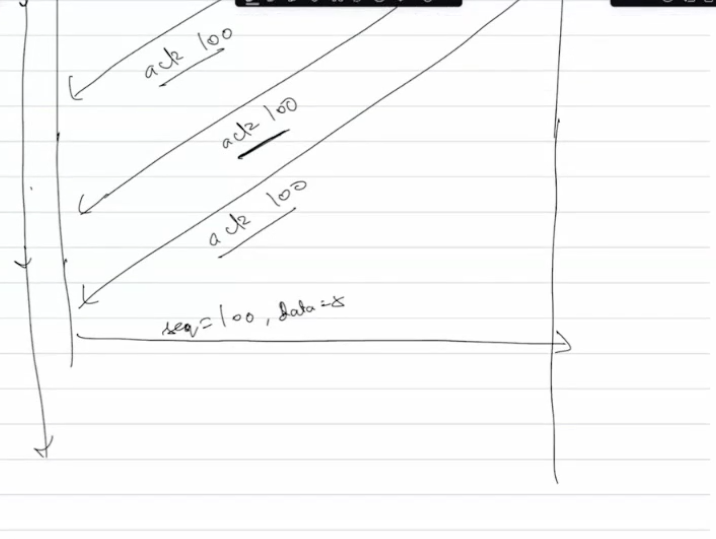 ack 100
ack 100
ack 100
seq=100, data=5